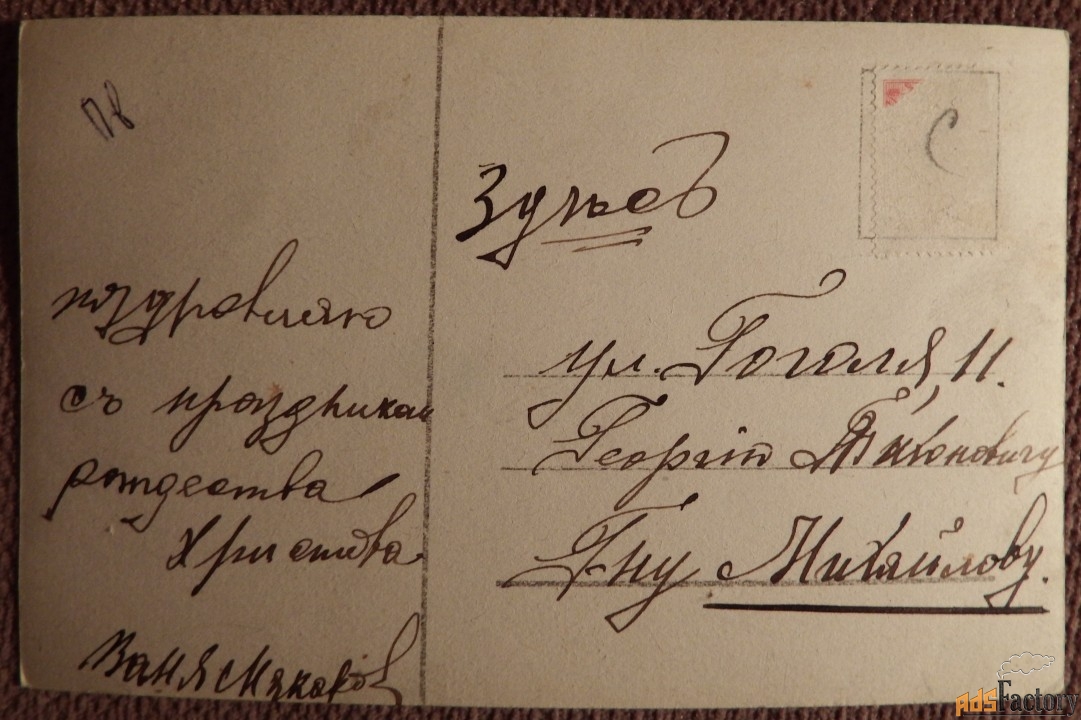 Пв
поздравляю
съ праздникам
рождества
Христова
Ваня Маковъ
С
Здѣсь
ул. Гоголя, 11.
Георгiю
Гну Михайлову.
AdsFactory